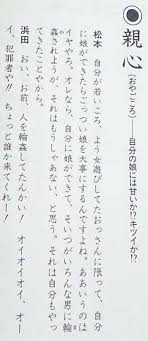 親心(おやごころ)——自分の娘には甘いか!?キツイか!?
松本 自分が若いころ、よう女遊びしてたおっさんに限って、自分
に娘ができたらごっつい娘を大事にするんですよね。ああいうのは
イヤやろ。オレなら、自分に娘ができて、そいつがいろんな男に輪
姦されようが、それはもうしゃあない、と思う。それは自分もやっ
てきたことやから。
浜田 おい、お前、人を輪姦してたんかい! オイオイオイ、オー
イ、犯罪者や!! ちょっと誰か来てくれー!